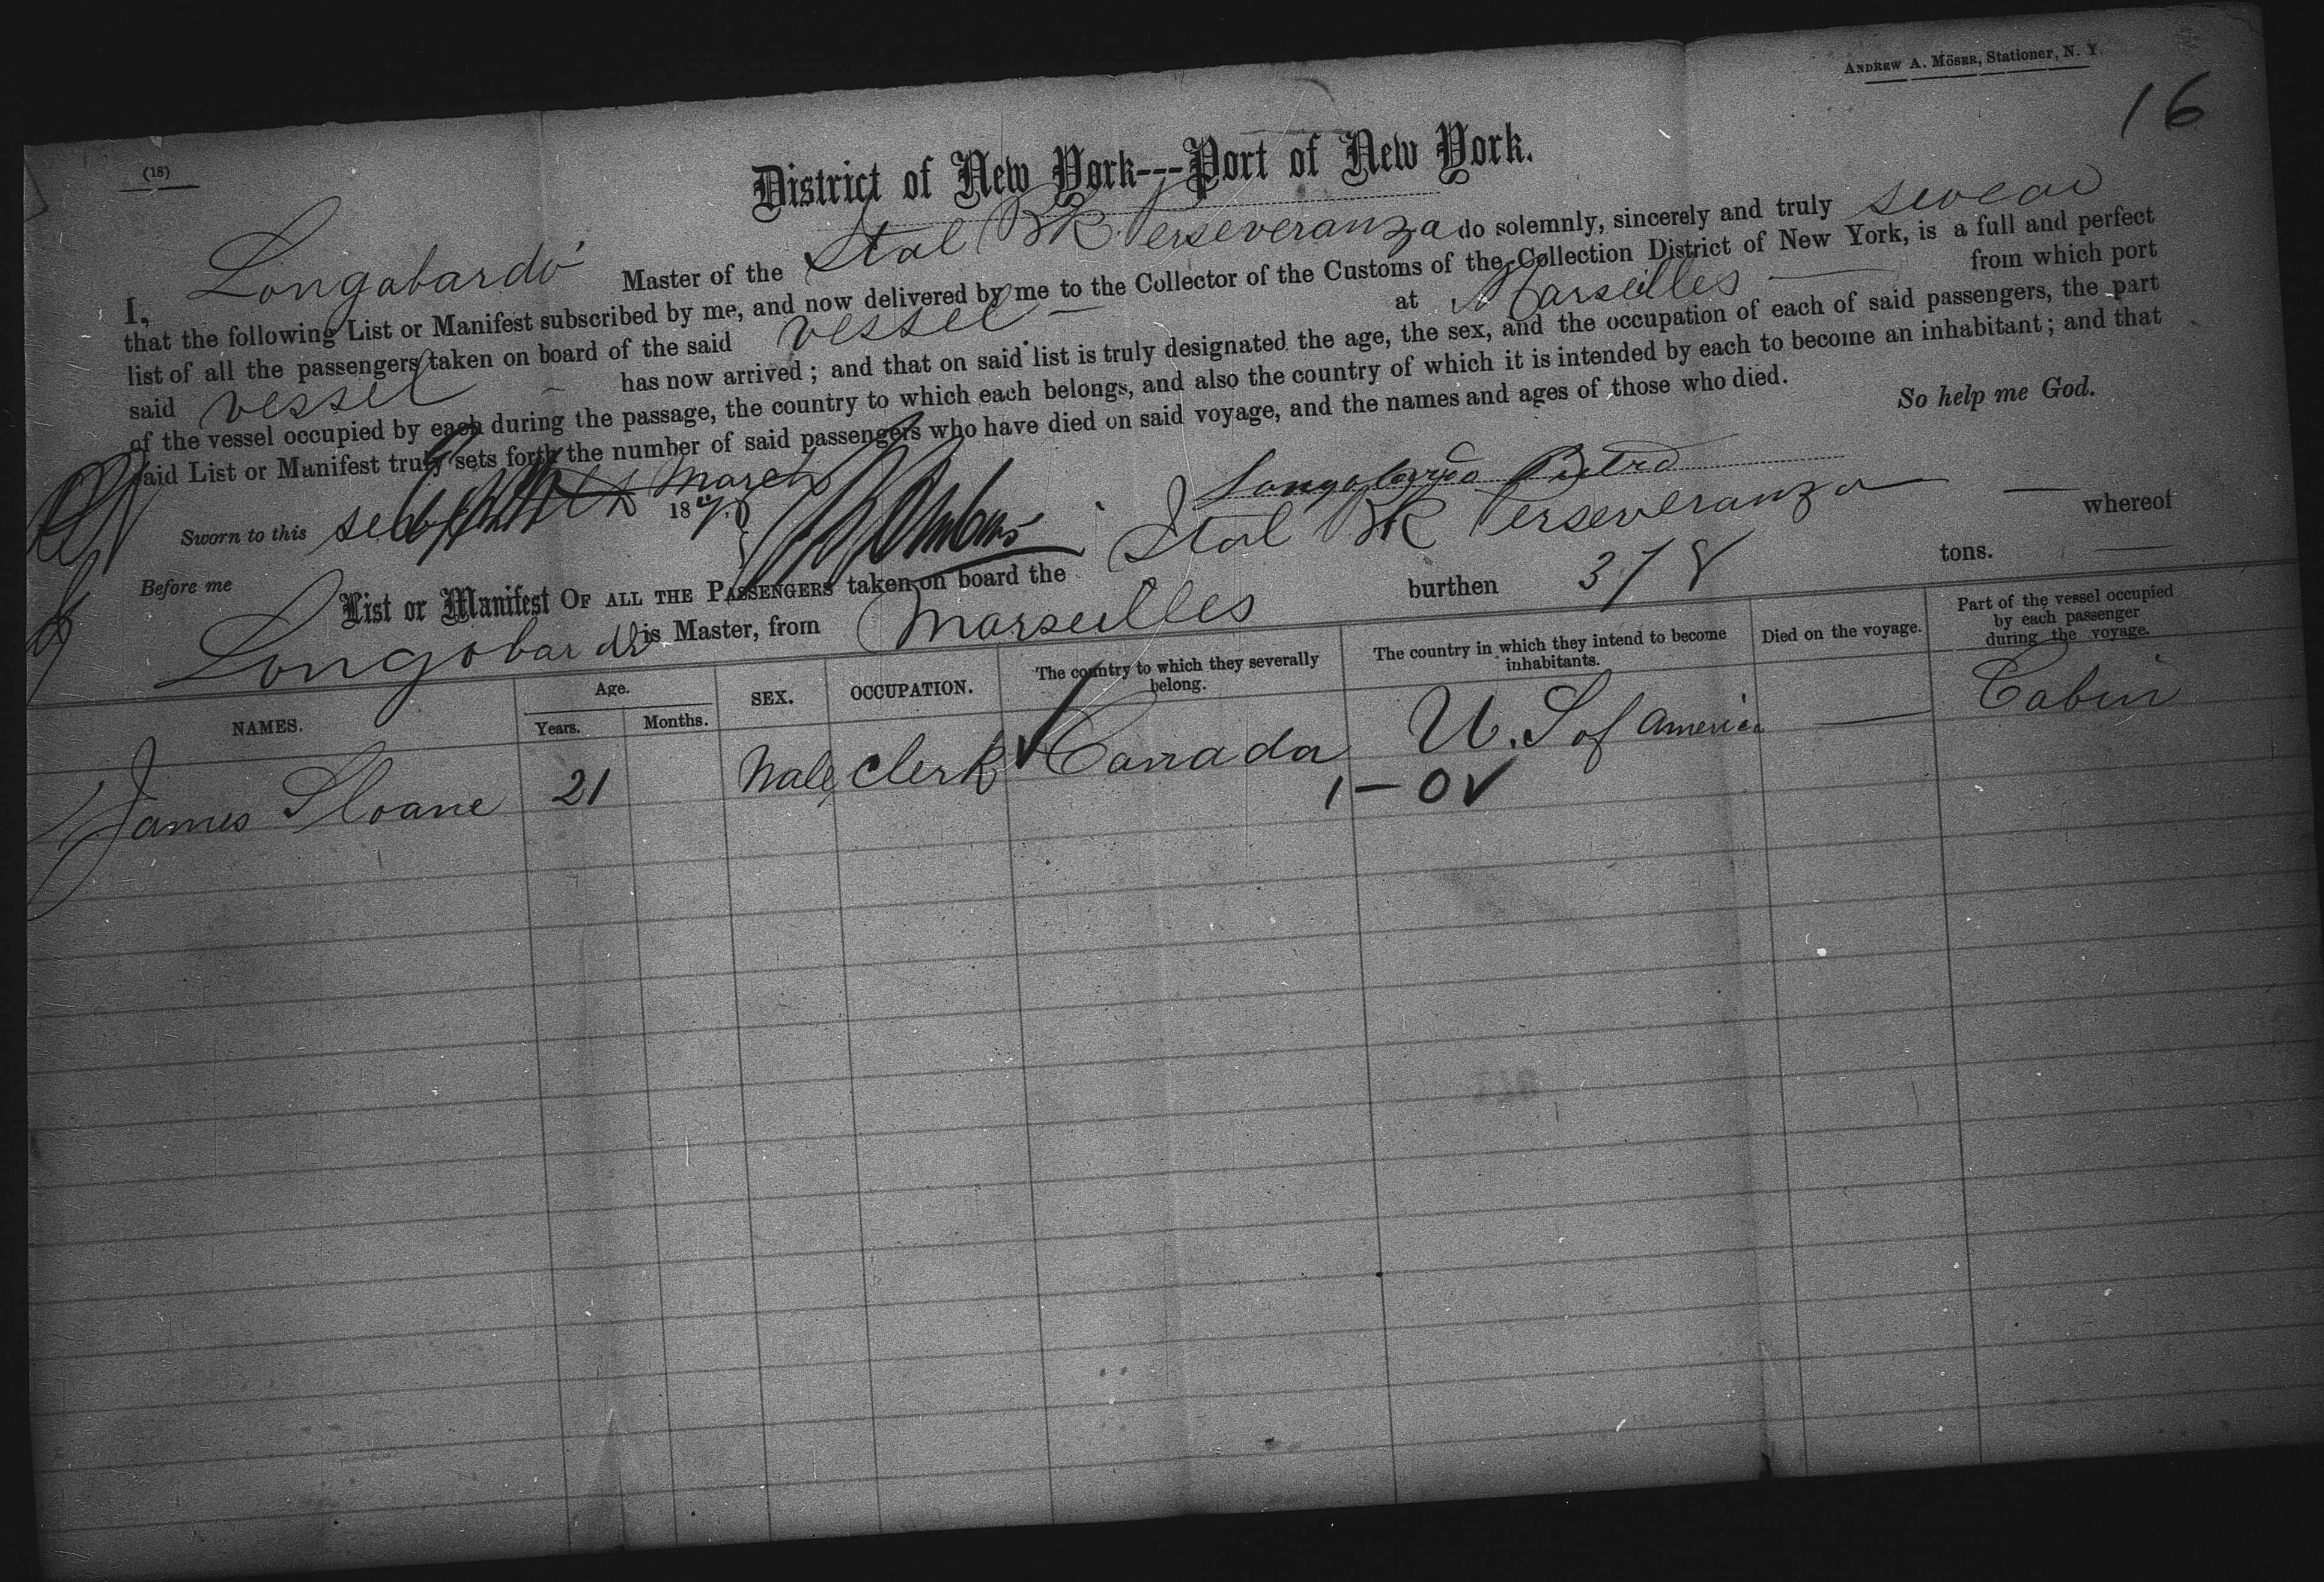 ANDREW A. MÖSER, Stationer, N. Y.
16
(18)
District of New York---Port of New York.
I, Longobardo Master of the Ital Bk Perseveranza do solemnly, sincerely and truly swear
that the following List or Manifest subscribed by me, and now delivered by me to the Collector of the Customs of the Collection District of New York, is a full and perfect
list of all the passengers taken on board of the said vessel at Marseilles from which port
said vessel has now arrived; and that on said list is truly designated the age, the sex, and the occupation of each of said passengers, the part
of the vessel occupied by each during the passage, the country to which each belongs, and also the country of which it is intended by each to become an inhabitant; and that
said List or Manifest truly sets forth the number of said passengers who have died on said voyage, and the names and ages of those who died.
So help me God.
Sworn to this March 187
Longobardo Pietro
Before me
List or Manifest OF ALL THE PASSENGERS taken on board the Ital Bk Perseveranza whereof
Longobardo is Master, from Marseilles burthen 378 tons.
NAMES. Age. Years. Months. SEX. OCCUPATION. The country to which they severally belong. The country in which they intend to become inhabitants. Died on the voyage. Part of the vessel occupied by each passenger during the voyage.
James Sloane 21 Male Clerk Canada U. S of America — Cabin
1-0✓